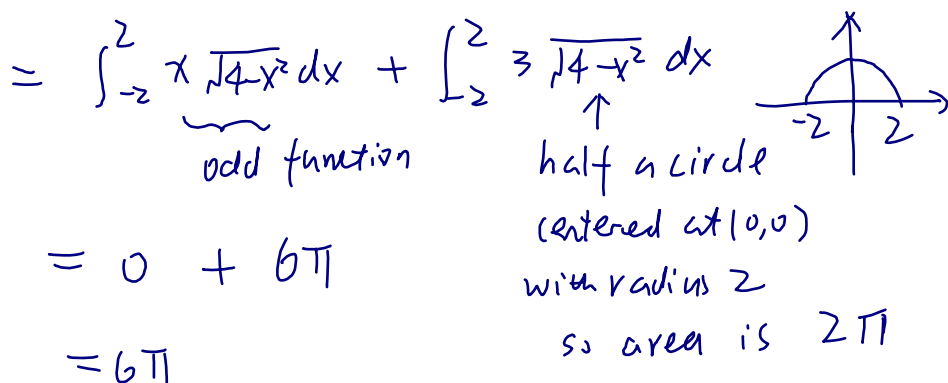 = ∫_{-2}^{2} x √(4-x²) dx + ∫_{-2}^{2} 3 √(4-x²) dx
odd function
↑
half a circle
centered at (0,0)
with radius 2
so area is 2π
-2 2
= 0 + 6π
= 6π